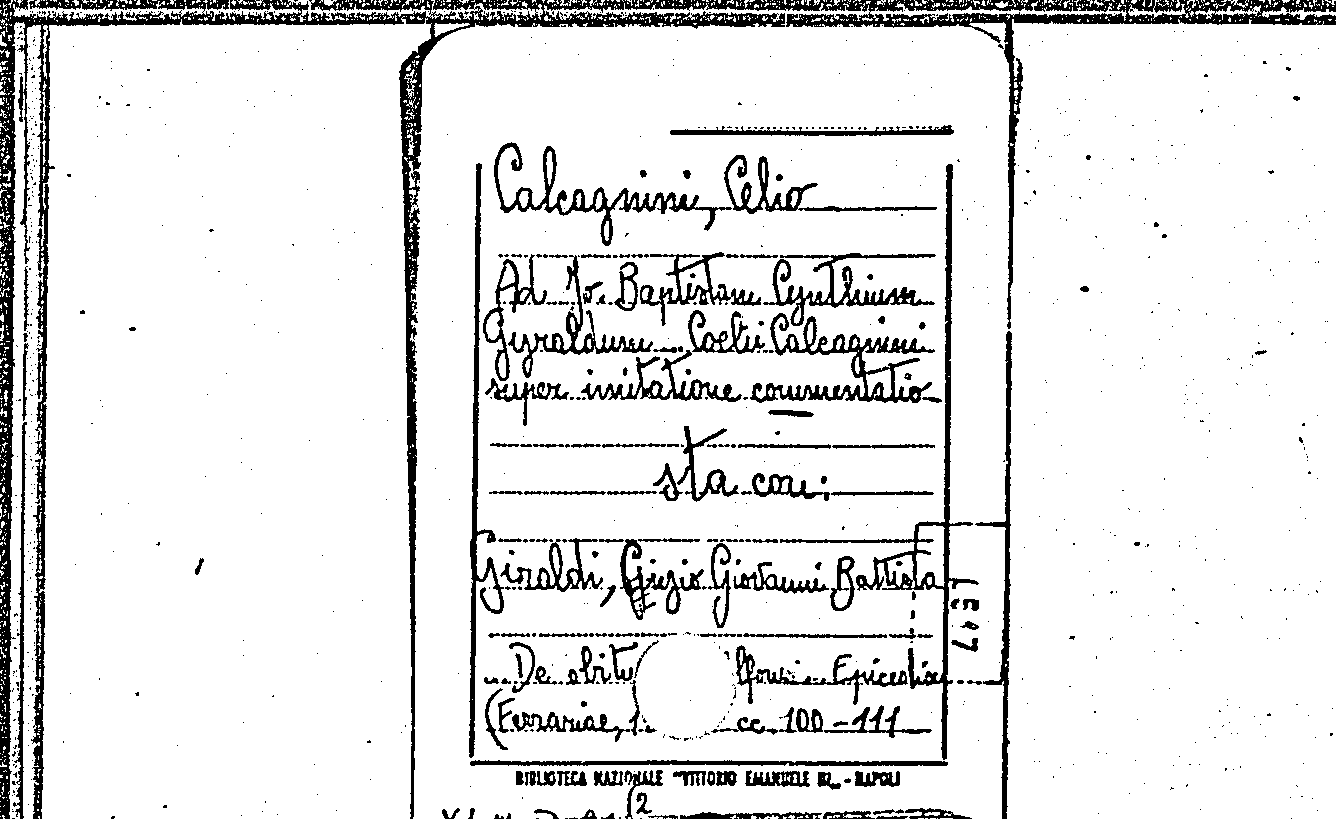 Calcagnini, Celio
Ad Jo. Baptistam Cynthium
Gyraldum ... Coelii Calcagnini
super imitatione commentatio
sta con:
Giraldi, Giovanni Battista
De obitu Epicedia
(Ferrariae, 1 cc. 100-111
BIBLIOTECA NAZIONALE "VITTORIO EMANUELE III„ - NAPOLI
2